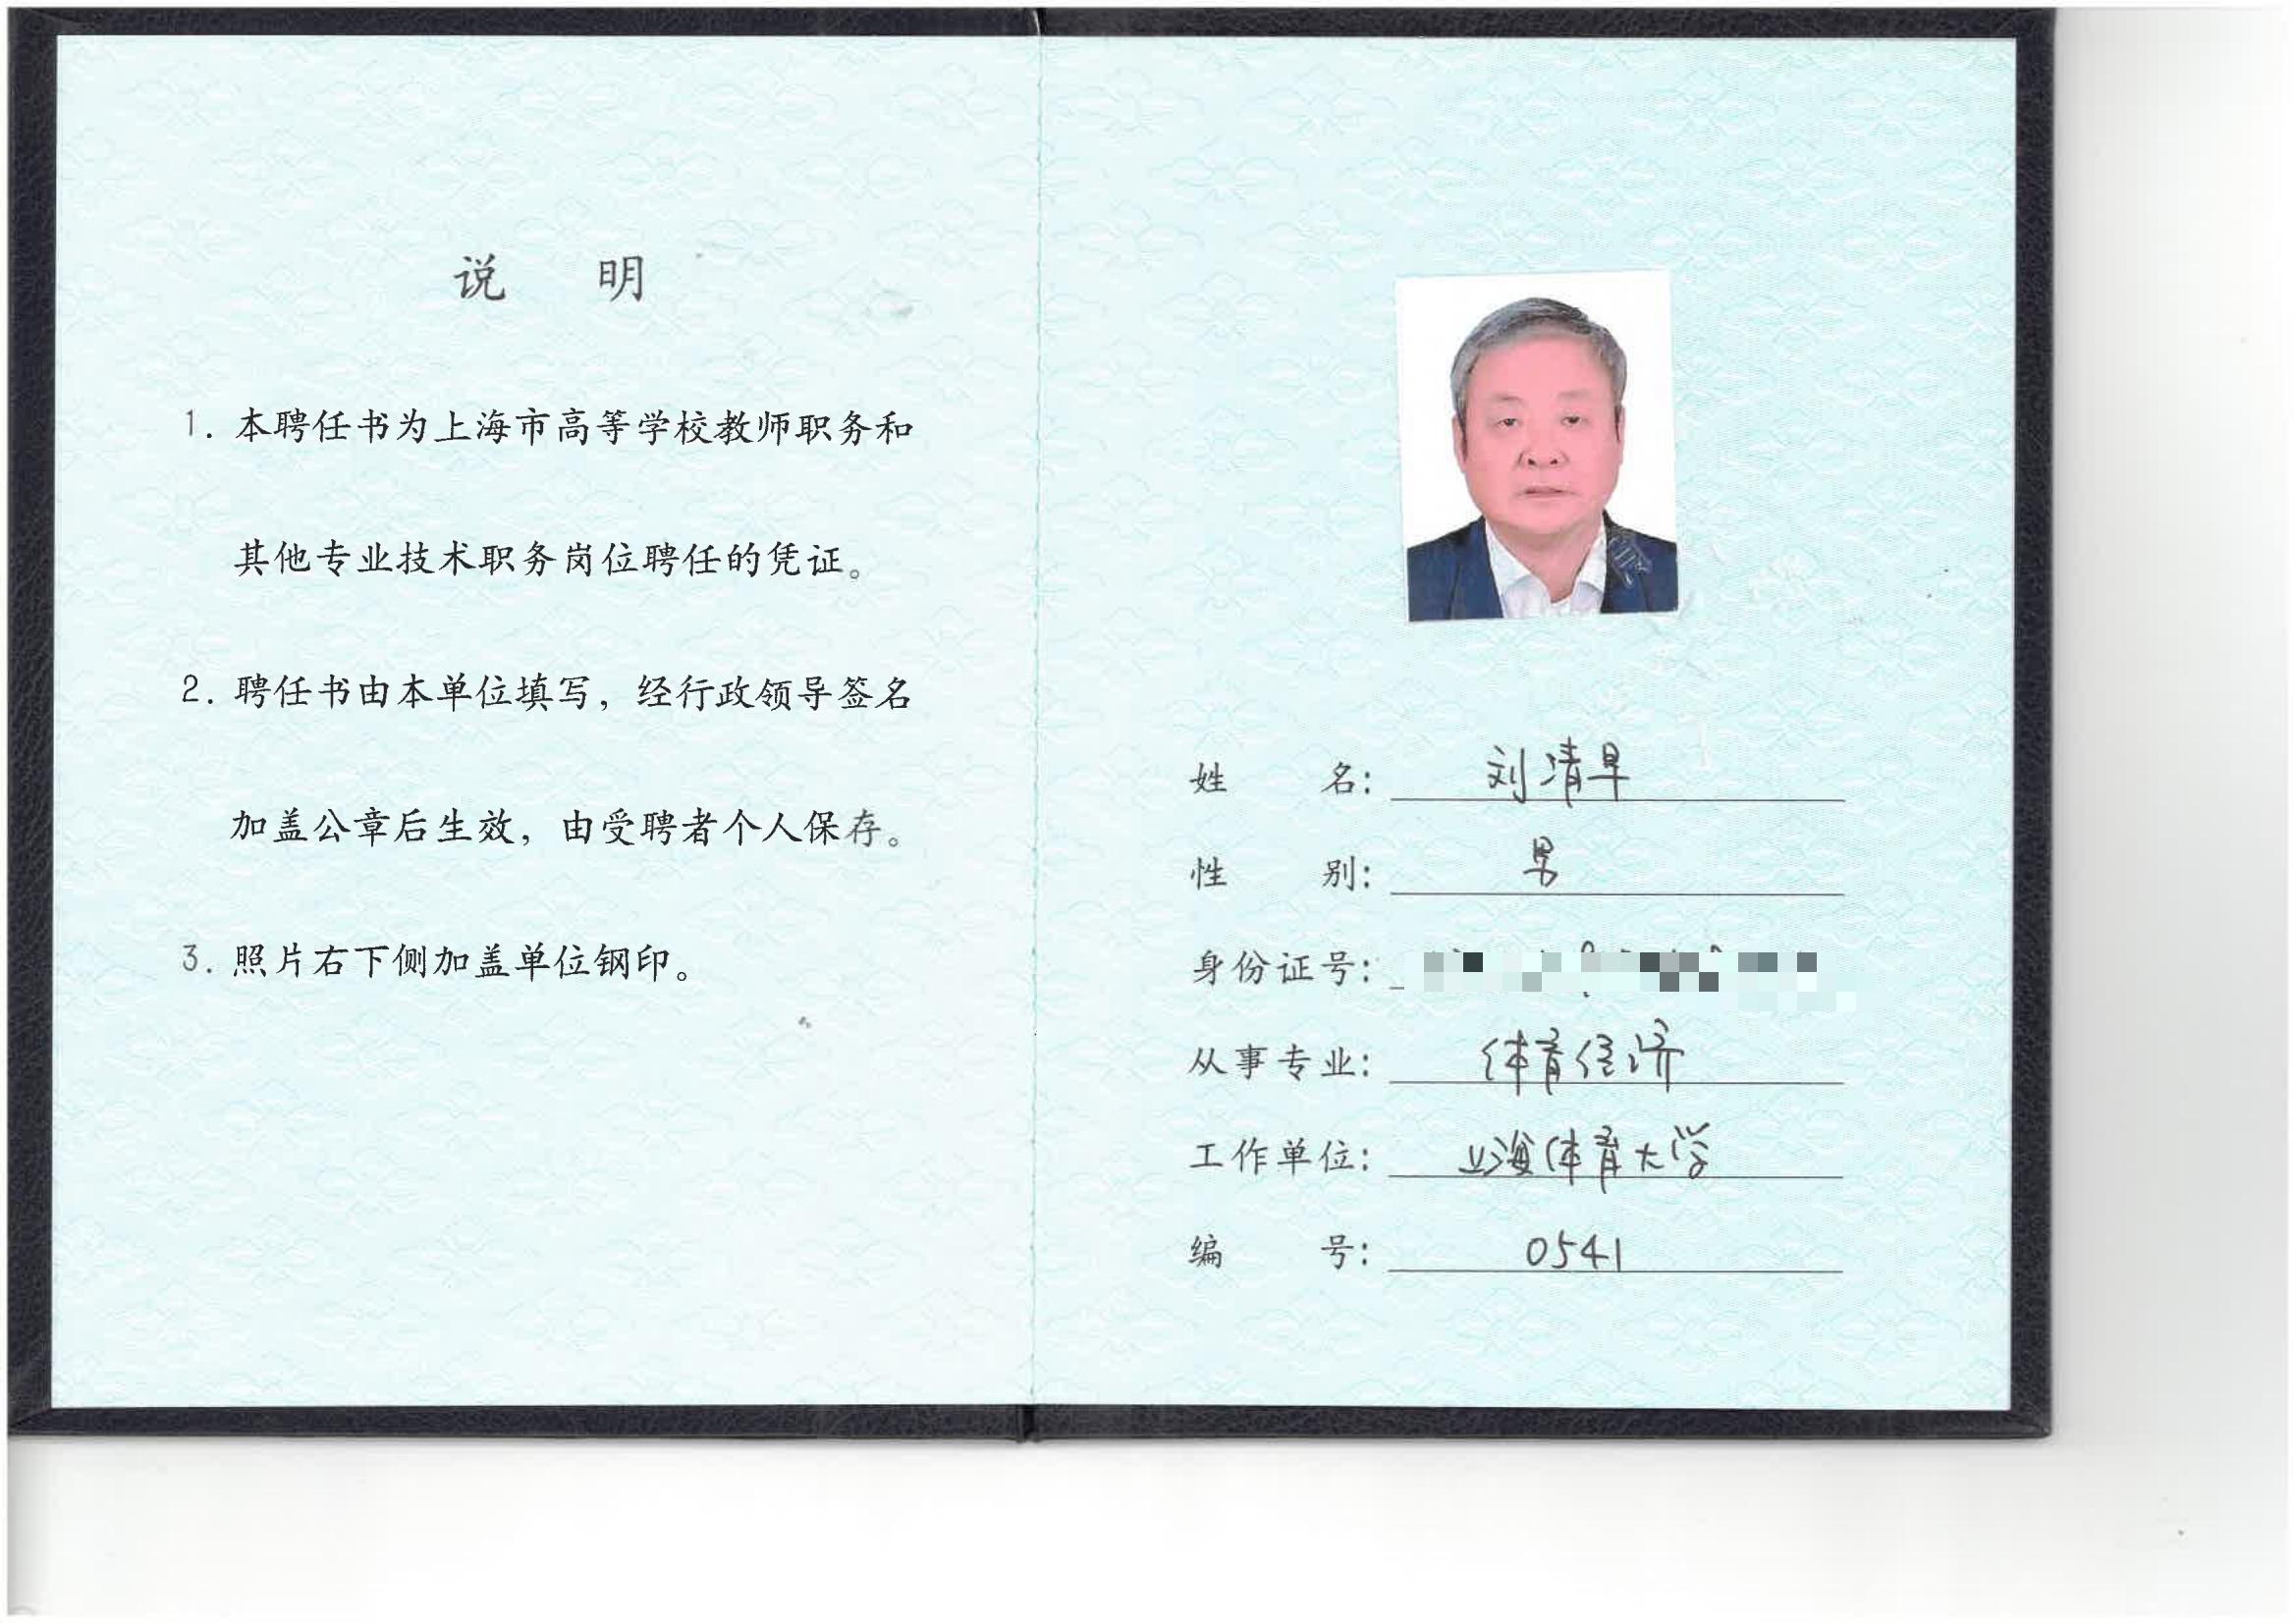 说 明
1. 本聘任书为上海市高等学校教师职务和
其他专业技术职务岗位聘任的凭证。
2. 聘任书由本单位填写，经行政领导签名
加盖公章后生效，由受聘者个人保存。
3. 照片右下侧加盖单位钢印。
姓 名： 刘清早
性 别： 男
身份证号：
从事专业： 体育经济
工作单位： 上海体育大学
编 号： 0541